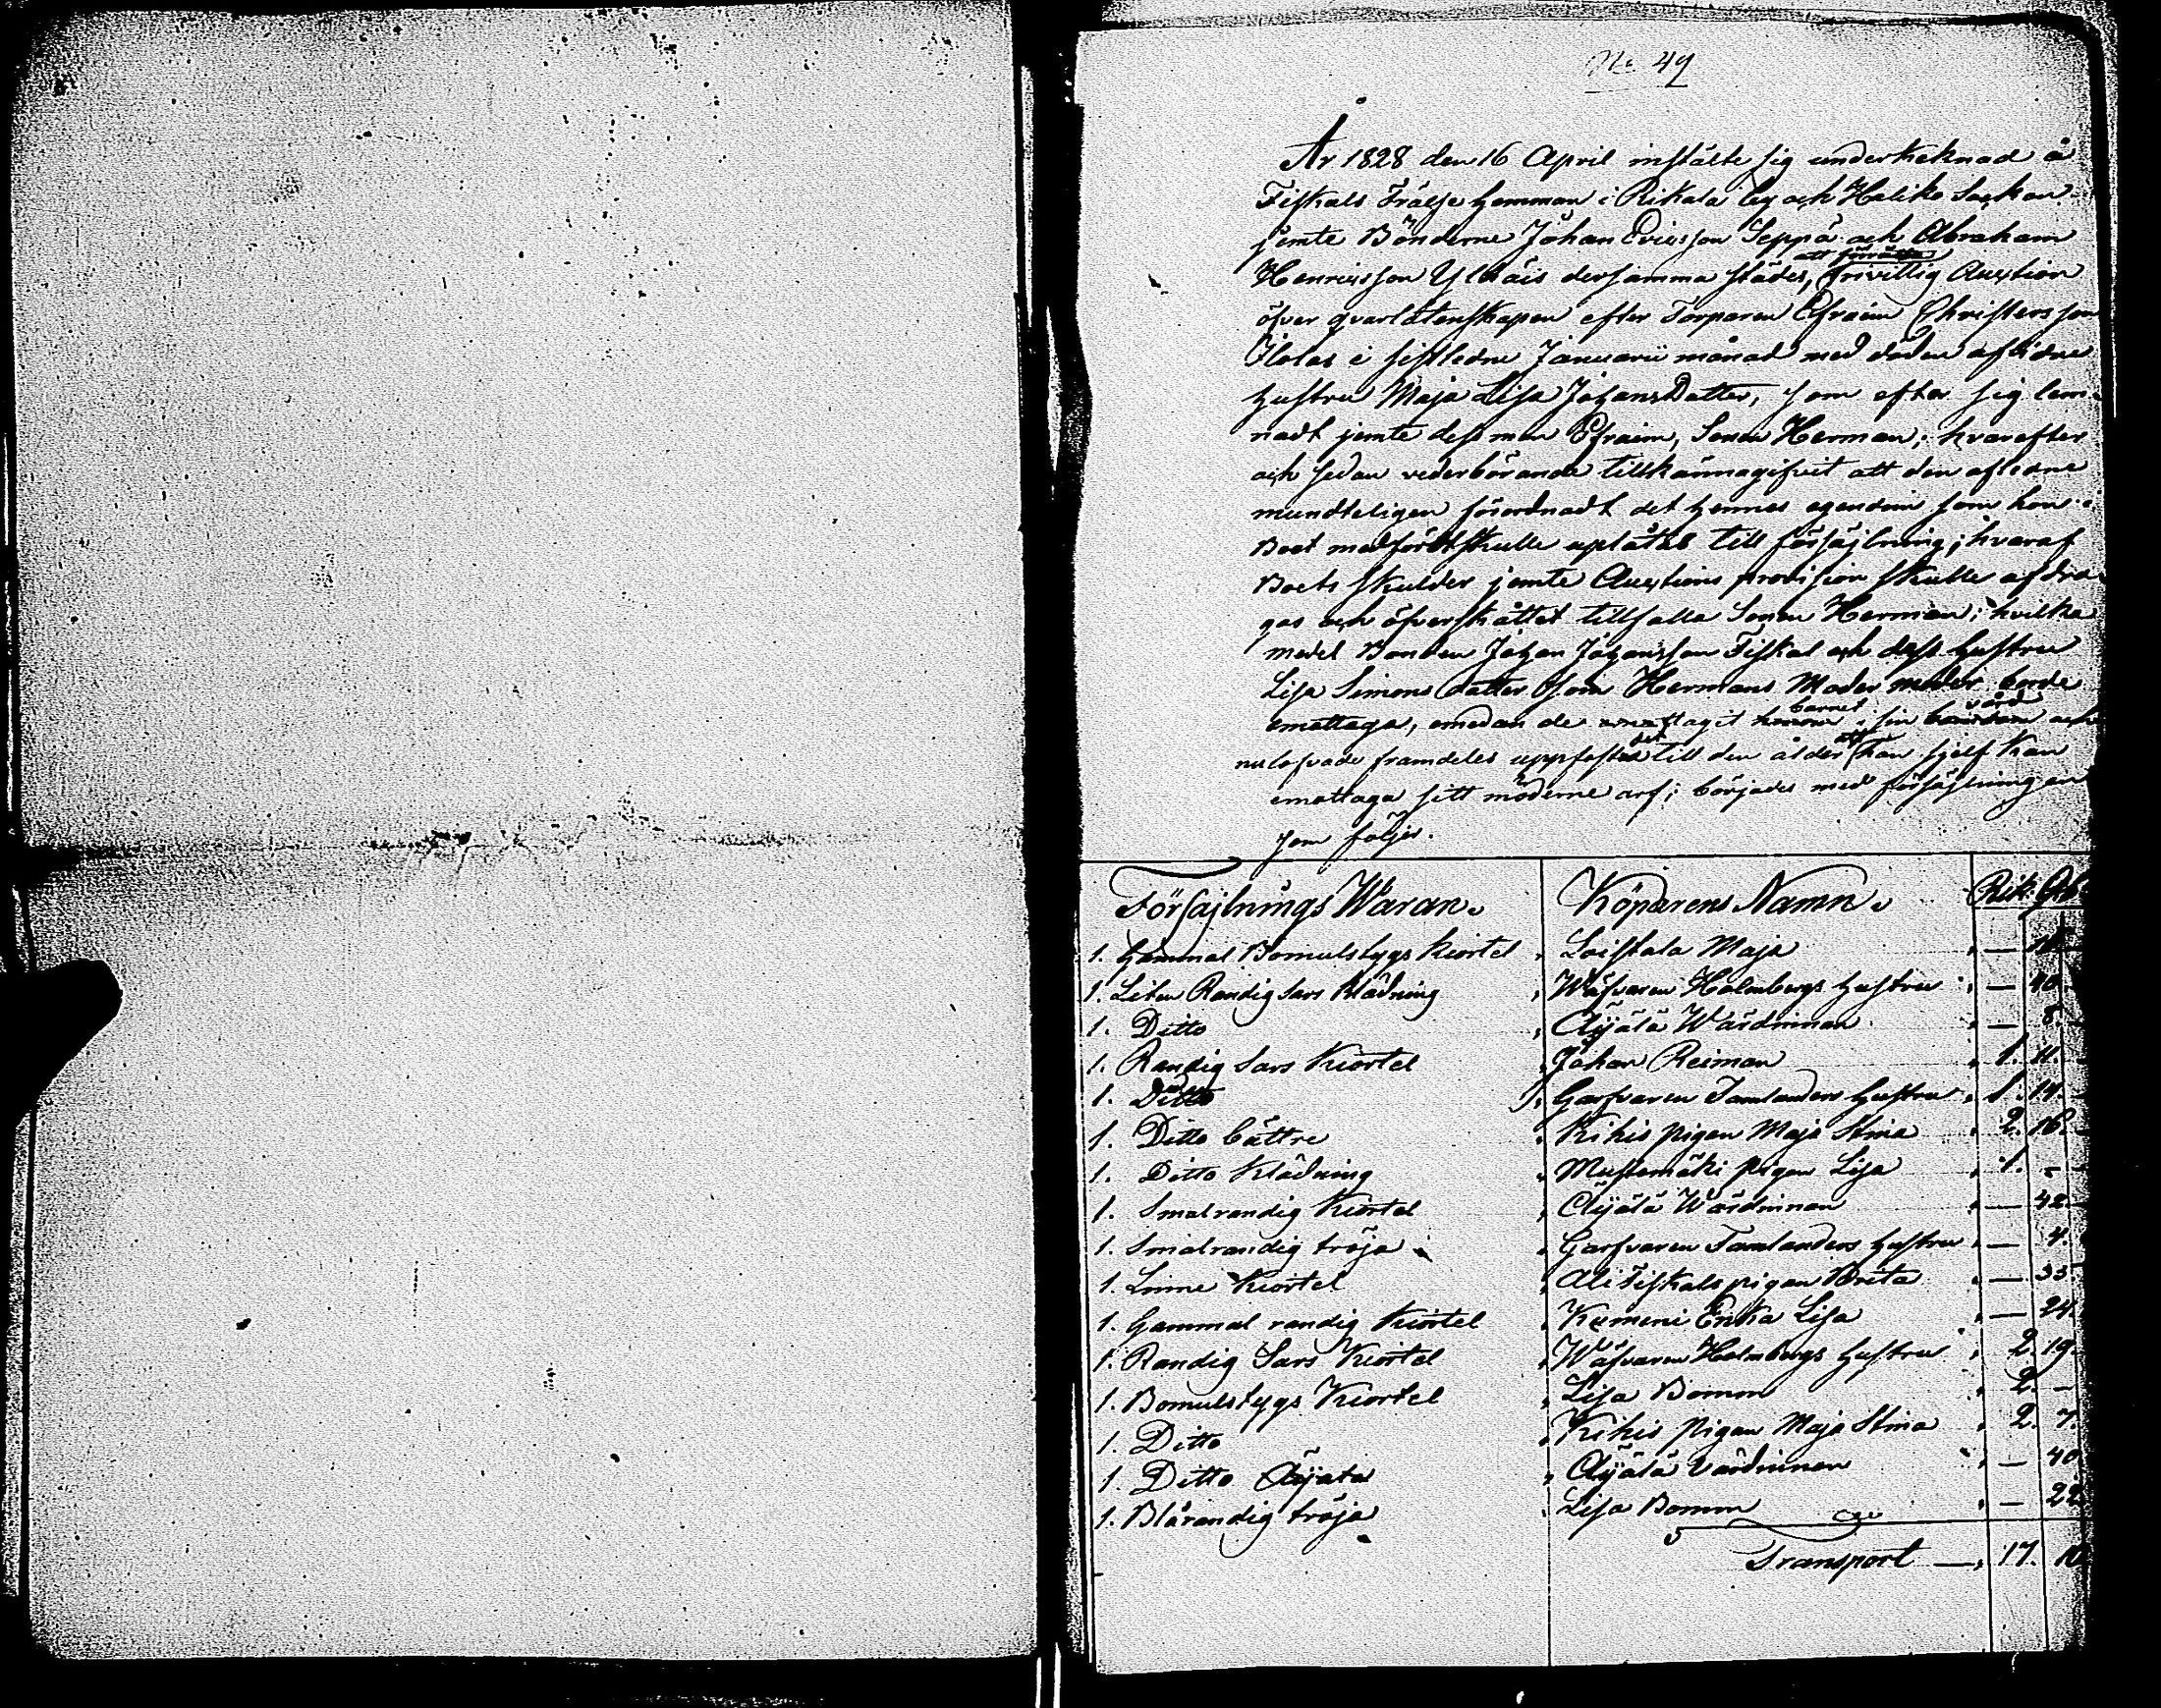 No 49
År 1828 den 16 April instälte sig undertecknad å
Fiskals Frälse hemman i Rikala by och Haliko Sockn
jemte Bönderne Johan Ericsson Seppä och Abraham
Henricsson Yltäis dersamma städes, att förrätta frivillig Auction
öfver qvarlåtenskapen efter Torparen Efraim Christersson
Ilolas i sistledne Januarii månad med döden aflidne
hustru Maja Lisa JohansDatter, som efter sig lem-
nadt jemte dess man Efraim, Sonen Herman; hvarefter
och sedan vederbörande tillkännagifvit att den aflidne
mundteligen förordnadt det hennes egendom som hon i
Boet medfördt skulle uplåtas till försäjlning; hvaraf
Boets skulder jemte Auctions provision skulle afdra-
gas och öfverskåttet tillfalla Sonen Herman; hvilka
medel Bonden Johan Johansson Fiskal och dess hustru
Lisa Simons datter som Hermans Moder moder borde
emottaga, emedan de tagit barnet i sin vård och
nu lofvade framdeles uppfostra det till den ålder att han sjelf kan
emottaga sitt möderne arf; börjades med försäjlningen
som följer.
Försäjlnings Waran. Köparens Namn. Rik. Gs.
1. Gammal Bomulstygs Kiortel Loistala Maja —
1. Liten Randig Sars Klädning Wäfvaren Holmbergs hustru — 40
1. Ditto Äijälä Wärdinnan — 8.
1. Randig Sars Kiortel Johan Reiman 1. 11.
1. Ditto Garfvaren Tamlanders hustru 1. 14.
1. Ditto bättre Kihis pigan Maja Stina 2. 16.
1. Ditto Klädning Mustamäki pigan Lisa 1. -
1. Smalrandig Kiortel Äijälä Wärdinnan — 42.
1. Smalrandig tröja Garfvaren Tamlanders hustru — 4.
1. Linne Kiortel Ali Fiskals pigan Brita — 33.
1. Gammal randig Kiortel Kumeni Enka Lisa — 24.
1. Randig Sars Kiortel Wäfvaren Holmbergs hustru 2. 19.
1. Bomulstygs Kiortel Lisa Bomm 2. -
1. Ditto Kihis Pigan Maja Stina 2. 7.
1. Ditto Äijälä Värdinnan — 40
1. Blårandig tröja Lisa Bomm — 22
Transport — 17. 10